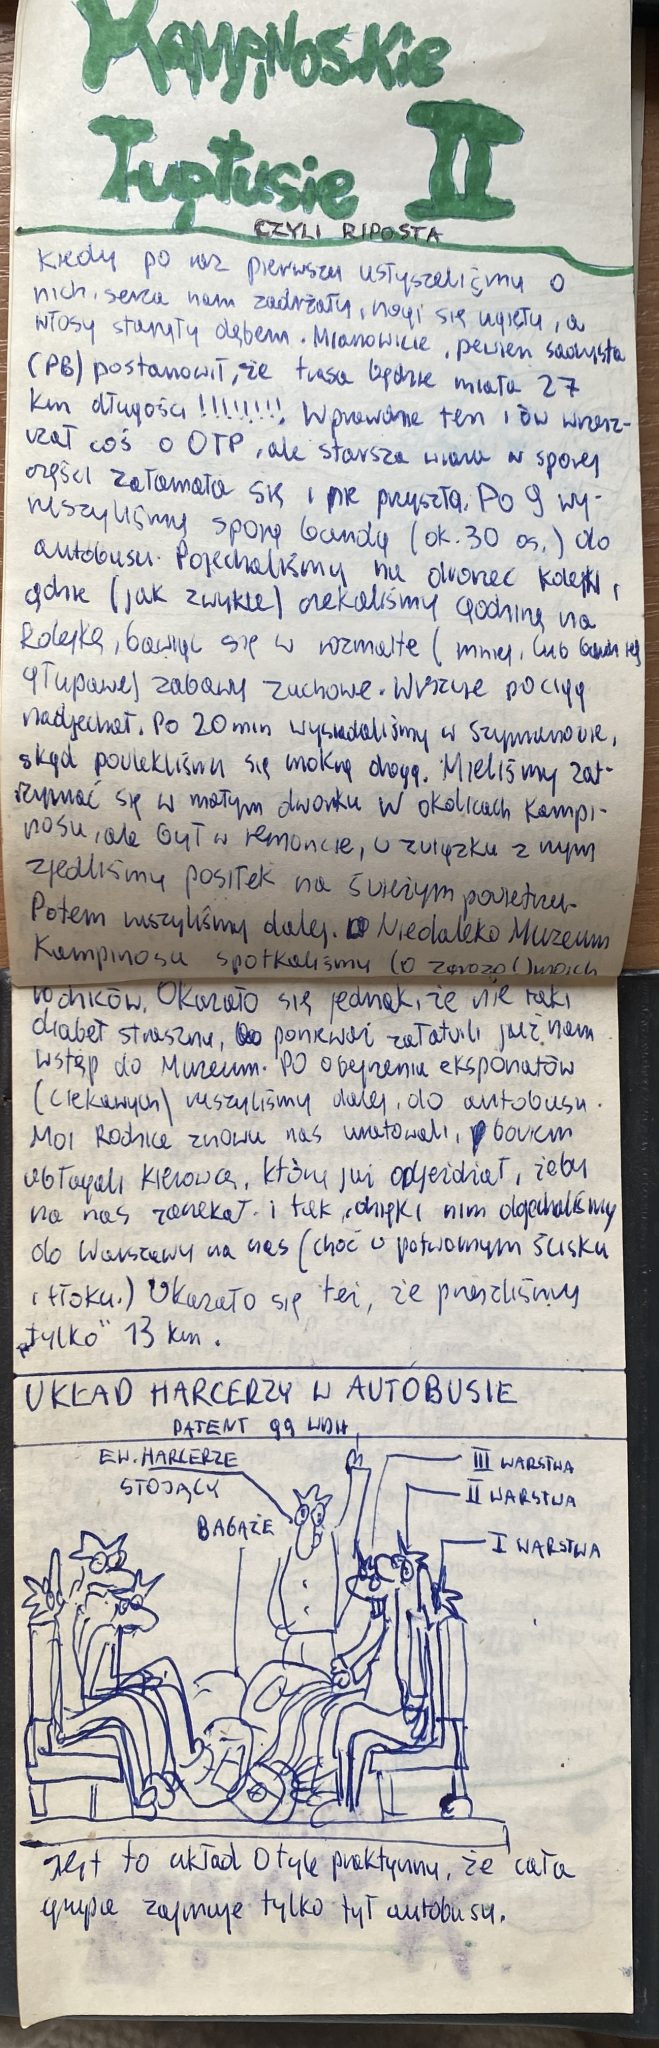 Kampinoskie
Tuptusie II
CZYLI RIPOSTA
Kiedy po raz pierwszy usłyszeliśmy o
nich, serca nam zadrżały, nogi się ugięły, a
włosy stanęły dębem. Mianowicie, pewien sadysta
(PB) postanowił, że trasa będzie miała 27
km długości !!!!!!!! Wprawdzie ten i ów wrzesz-
czał coś o OTP, ale starsza wiara w sporej
części załamała się i nie przyszła. Po 9 wy-
ruszyliśmy sporą bandą (ok. 30 os.) do
autobusu. Pojechaliśmy na dworzec kolejki,
gdzie (jak zwykle) czekaliśmy godzinę na
kolejkę, bawiąc się w rozmaite (mniej, lub bardziej
głupawe) zabawy zuchowe. Wreszcie pociąg
nadjechał. Po 20 min wysiadaliśmy w Szymanowie,
skąd powlekliśmy się mokrą drogą. Mieliśmy zat-
rzymać się w małym dworku w okolicach Kampi-
nosu, ale był w remoncie, w związku z czym
zjedliśmy posiłek na świeżym powietrzu.
Potem ruszyliśmy dalej. Niedaleko Muzeum
Kampinosu spotkaliśmy (o zgrozo!) moich
rodziców. Okazało się jednak, że nie taki
diabeł straszny, ponieważ załatwili już nam
wstęp do Muzeum. Po obejrzeniu eksponatów
(ciekawych) ruszyliśmy dalej, do autobusu.
Moi Rodzice znowu nas uratowali, bowiem
ubłagali kierowcę, który już odjeżdżał, żeby
na nas zaczekał. i tak, dzięki nim dojechaliśmy
do Warszawy na czas (choć w potwornym ścisku
i tłoku.) Okazało się też, że przeszliśmy
"tylko" 13 km.
UKŁAD HARCERZY W AUTOBUSIE
PATENT 99 WDH
EW. HARCERZE
STOJĄCY
BAGAŻE
III WARSTWA
II WARSTWA
I WARSTWA
Jest to układ o tyle praktyczny, że cała
grupa zajmuje tylko tył autobusu.